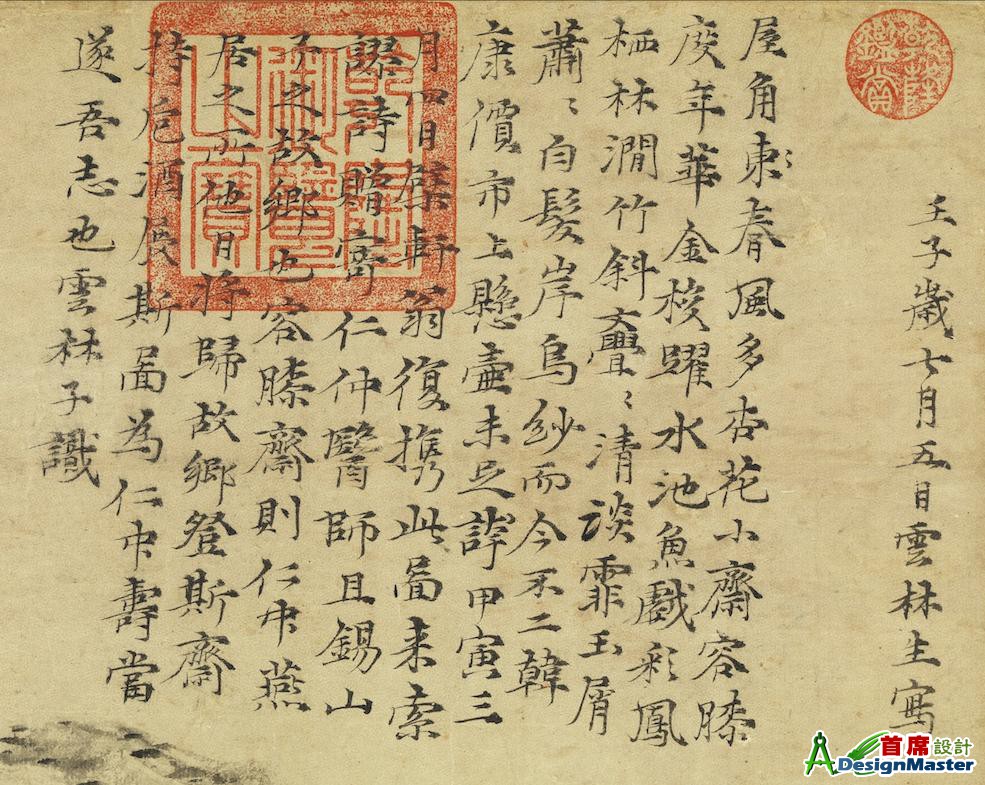 壬子歲七月五日雲林生寫
屋角東春風多杏花小齋容膝
度年華金梭躍水池魚戲彩鳳
栖林澗竹斜亹〻清談霏玉屑
蕭〻白髮岸烏紗而今不二韓
康價市上懸壺未足誇甲寅三
月四日檗軒翁復携此圖来索
謬詩贈寄仁仲醫師且錫山
予之故鄉也容膝齋則仁中燕
居之所他日將歸故鄉登斯齋
持卮酒展斯圖為仁中壽當
遂吾志也雲林子識
首席設計
DesignMaster